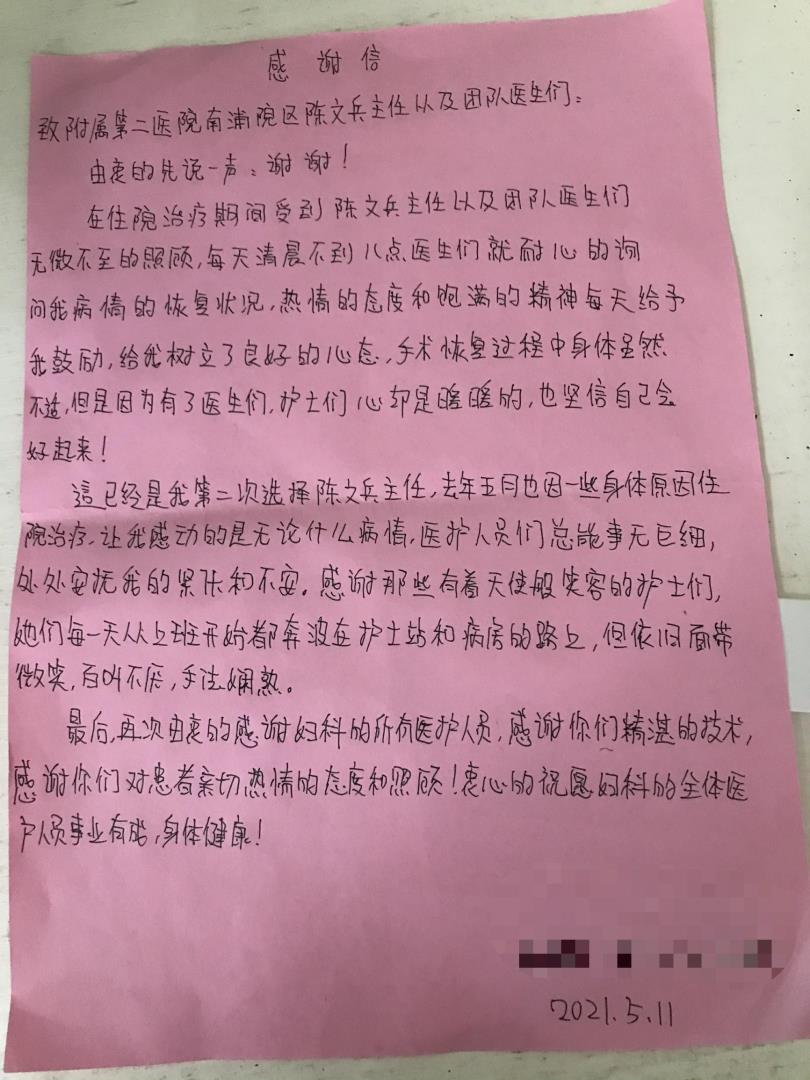 感谢信
致附属第二医院南浦院区陈文兵主任以及团队医生们:
由衷的先说一声:谢谢!
在住院治疗期间受到陈文兵主任以及团队医生们
无微不至的照顾,每天清晨不到八点医生们就耐心的询
问我病情的恢复状况,热情的态度和饱满的精神每天给予
我鼓励,给我树立了良好的心态,手术恢复过程中身体虽然
不适,但是因为有了医生们,护士们心却是暖暖的,也坚信自己会
好起来!
這已经是我第二次选择陈文兵主任,去年五月也因一些身体原因住
院治疗,让我感动的是无论什么病情,医护人员们总能事无巨细,
处处安抚我的紧张和不安。感谢那些有着天使般笑容的护士们,
她们每一天从上班开始都奔波在护士站和病房的路上,但依旧面带
微笑,百叫不厌,手法娴熟。
最后,再次由衷的感谢妇科的所有医护人员,感谢你们精湛的技术,
感谢你们对患者亲切热情的态度和照顾!衷心的祝愿妇科的全体医
护人员事业有成,身体健康!
2021.5.11